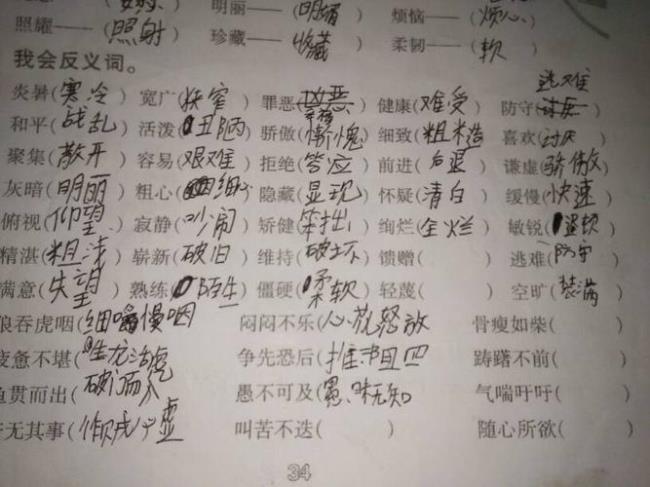 明丽——(明媚) 烦恼——(烦心)
照耀——(照射) 珍藏——(收藏) 柔韧——(软)
我会反义词。
逃难
炎暑(寒冷) 宽广(狭窄) 罪恶( ) 健康(难受) 防守( )
和平(战乱) 活泼(丑陋) 骄傲(惭愧) 细致(粗糙) 喜欢(讨厌)
聚集(散开) 容易(艰难) 拒绝(答应) 前进(后退) 谦虚(骄傲)
灰暗(明丽) 粗心(细心) 隐藏(显现) 怀疑(清白) 缓慢(快速)
俯视(仰望) 寂静(吵闹) 矫健(笨拙) 绚烂(全烂) 敏锐( )
精湛(粗浅) 崭新(破旧) 维持(破坏) 馈赠( ) 逃难(防守)
满意(失望) 熟练(陌生) 僵硬(柔软) 轻蔑( ) 空旷(装满)
狼吞虎咽(细嚼慢咽) 闷闷不乐(心花怒放) 骨瘦如柴( )
疲惫不堪(生龙活虎) 争先恐后( ) 踌躇不前( )
鱼贯而出( ) 愚不可及(愚昧无知) 气喘吁吁( )
若无其事(作贼心虚) 叫苦不迭( ) 随心所欲( )
34